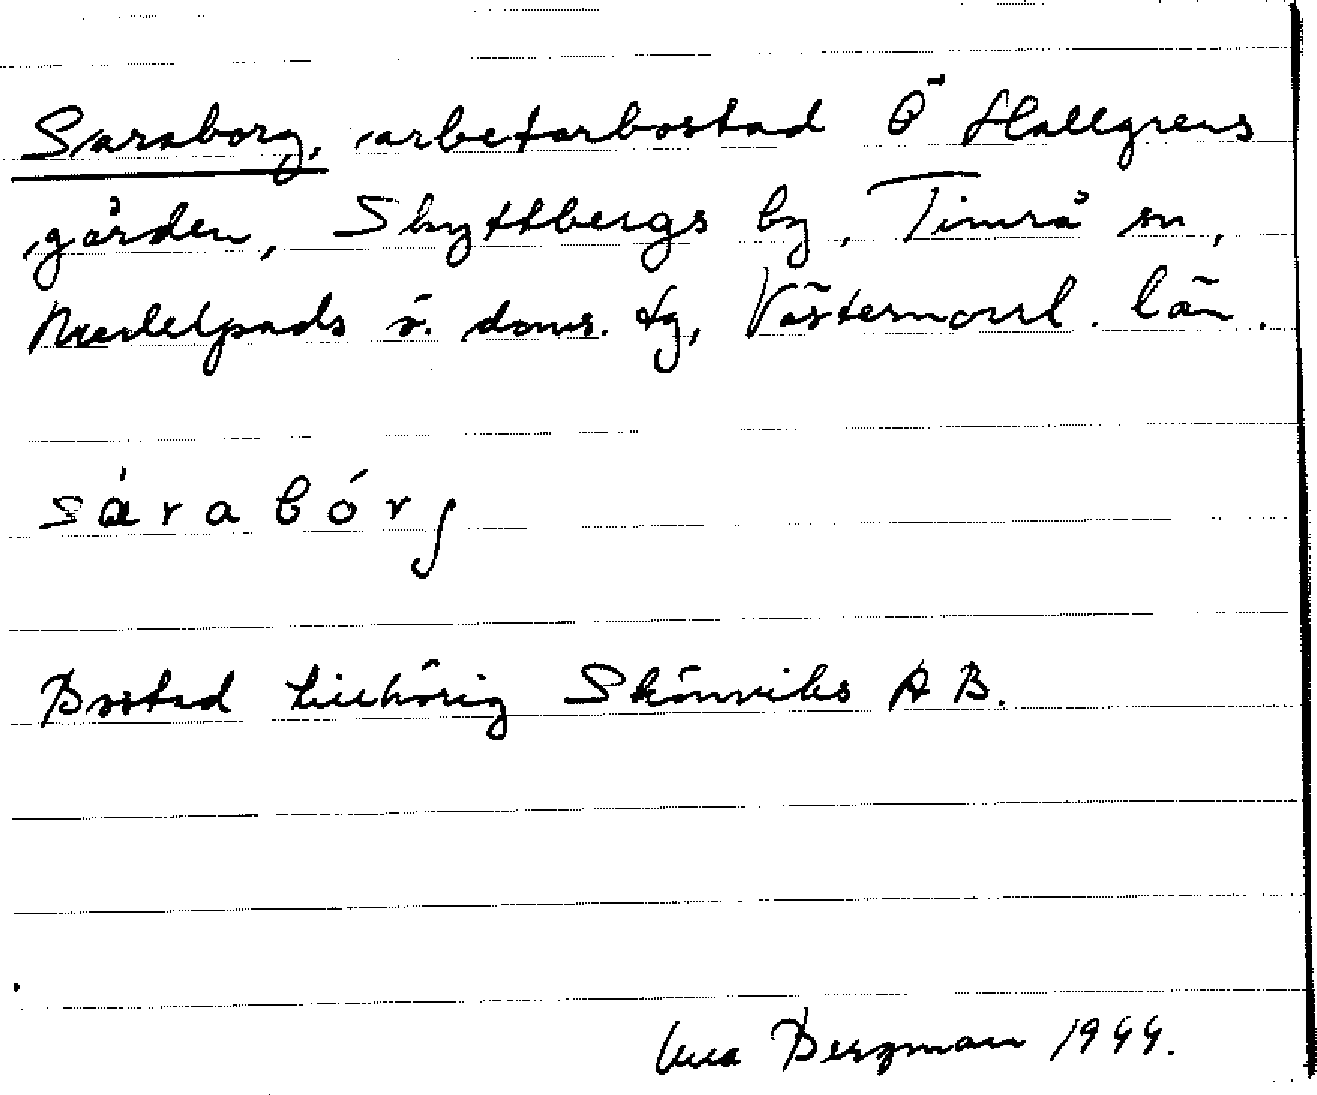 Saraborg, arbetarbostad Ö Hallgrens
gården, Skyttbergs by, Timrå sn,
Medelpads ö. doms. tg, Västernorrl. län.
sárabórg
Bostad tillhörig Skönviks A B.
Bergman 1944.